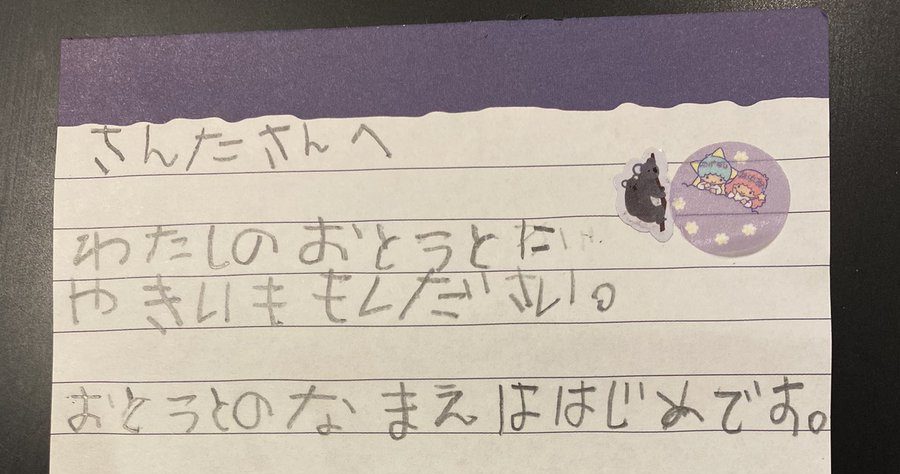 さんたさんへ
わたしのおとうとに
やきいももください。
おとうとのなまえははじめです。